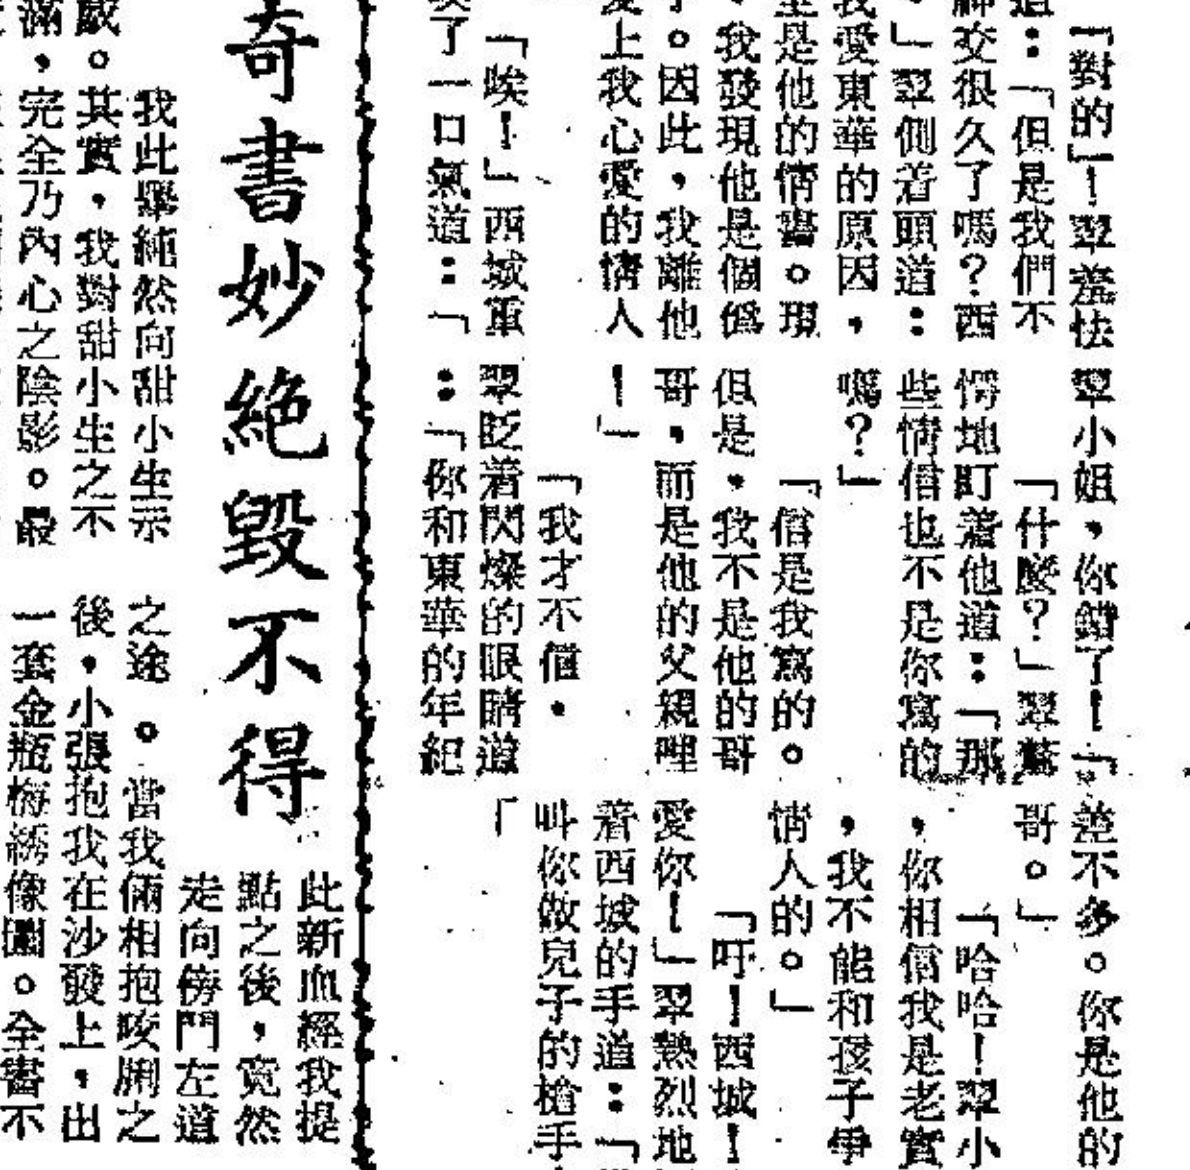 「對的」！翠羞怯
道：「但是我們不
交很久了嗎？西
」翠側着頭道：
我愛東華的原因，
是他的情書。現
我發現他是個僞
。因此，我離他
上我心愛的情人
「唉！」西城重
了一口氣道：「
翠小姐，你錯了！「
「什麼？」翠驚
愕地盯着他道：「那
些情信也不是你寫的
嗎？」
「信是我寫的。
但是，我不是他的哥
哥，而是他的父親哩
！」
「我才不信。
翠眨着閃爍的眼睛道
：「你和東華的年紀
差不多。你是他的
哥。」
「哈哈！翠小
，你相信我是老實
，我不能和孩子爭
情人的。」
「吁！西城！
愛你！」翠熱烈地
着西城的手道：「
叫你做兒子的槍手
「
奇書妙絕毀不得
我此舉純然向甜小生示
威。其實，我對甜小生之不
滿，完全乃內心之陰影。最
此新血經我提
點之後，竟然
走向傍門左道
之途。當我倆相抱咬脷之
後，小張抱我在沙發上，出
一套金瓶梅綉像圖。全書不